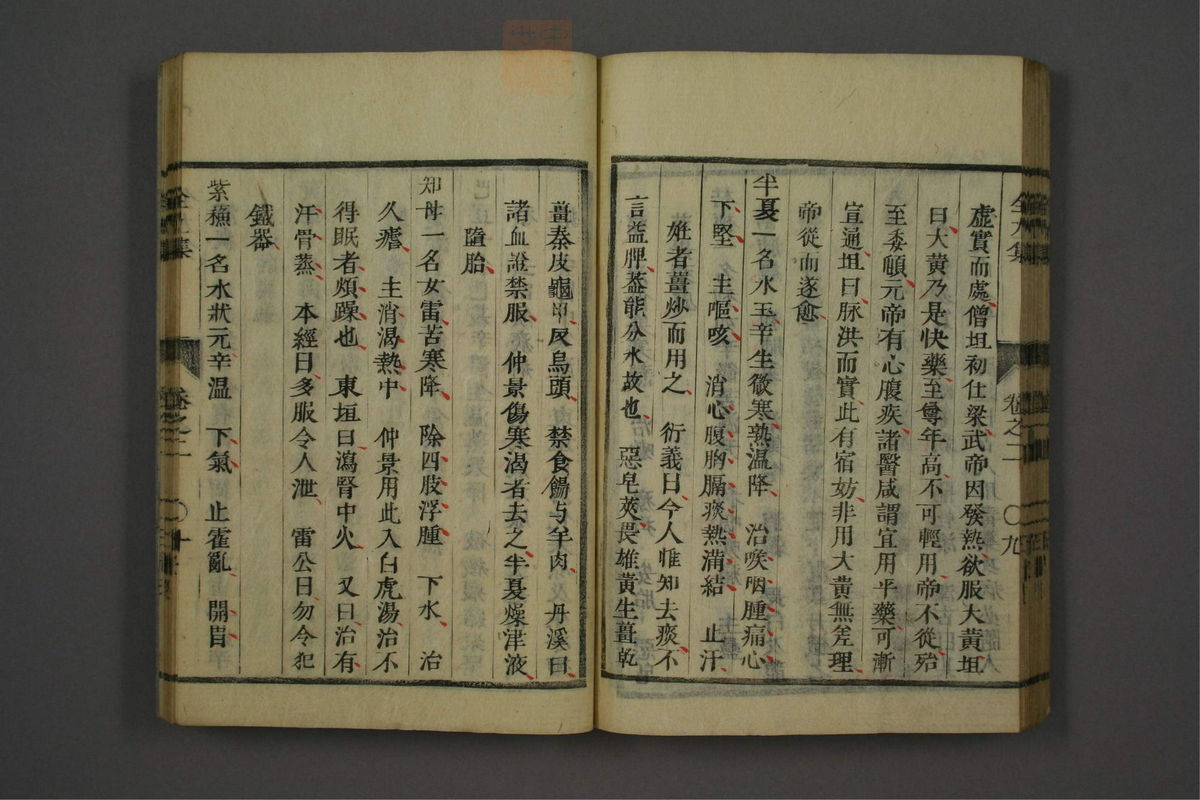 虛實而處僧坦初仕梁武帝因發熱欲服大黃坦
曰大黃乃是快藥至尊年高不可輕用帝不從殆
至委頓元帝有心腹疾諸醫咸謂宜用平藥可漸
宣通坦曰脉洪而實此有宿妨非用大黃無差理
帝從而遂愈
半夏一名水玉辛生微寒熟温降 治喉咽腫痛心
下堅 主嘔咳 消心腹胸膈痰熱滿結 止汗
姙者薑炒而用之 衍義曰今人惟知去痰不
言益脾葢能分水故也 惡皂莢畏雄黃生薑乾
卷之二 〇九
薑秦皮龜甲反烏頭 禁食餳与羊肉 丹溪曰
諸血證禁服 仲景傷寒渴者去之半夏燥津液
墮胎
知母一名女雷苦寒降 除四肢浮腫 下水 治
久瘧 主消渴熱中 仲景用此入白虎湯治不
得眠者煩躁也 東垣曰瀉腎中火 又曰治有
汗骨蒸 本經曰多服令人泄 雷公曰勿令犯
鐵器
紫蘓一名水狀元辛温 下氣 止霍亂 開胃
卷之二 〇十